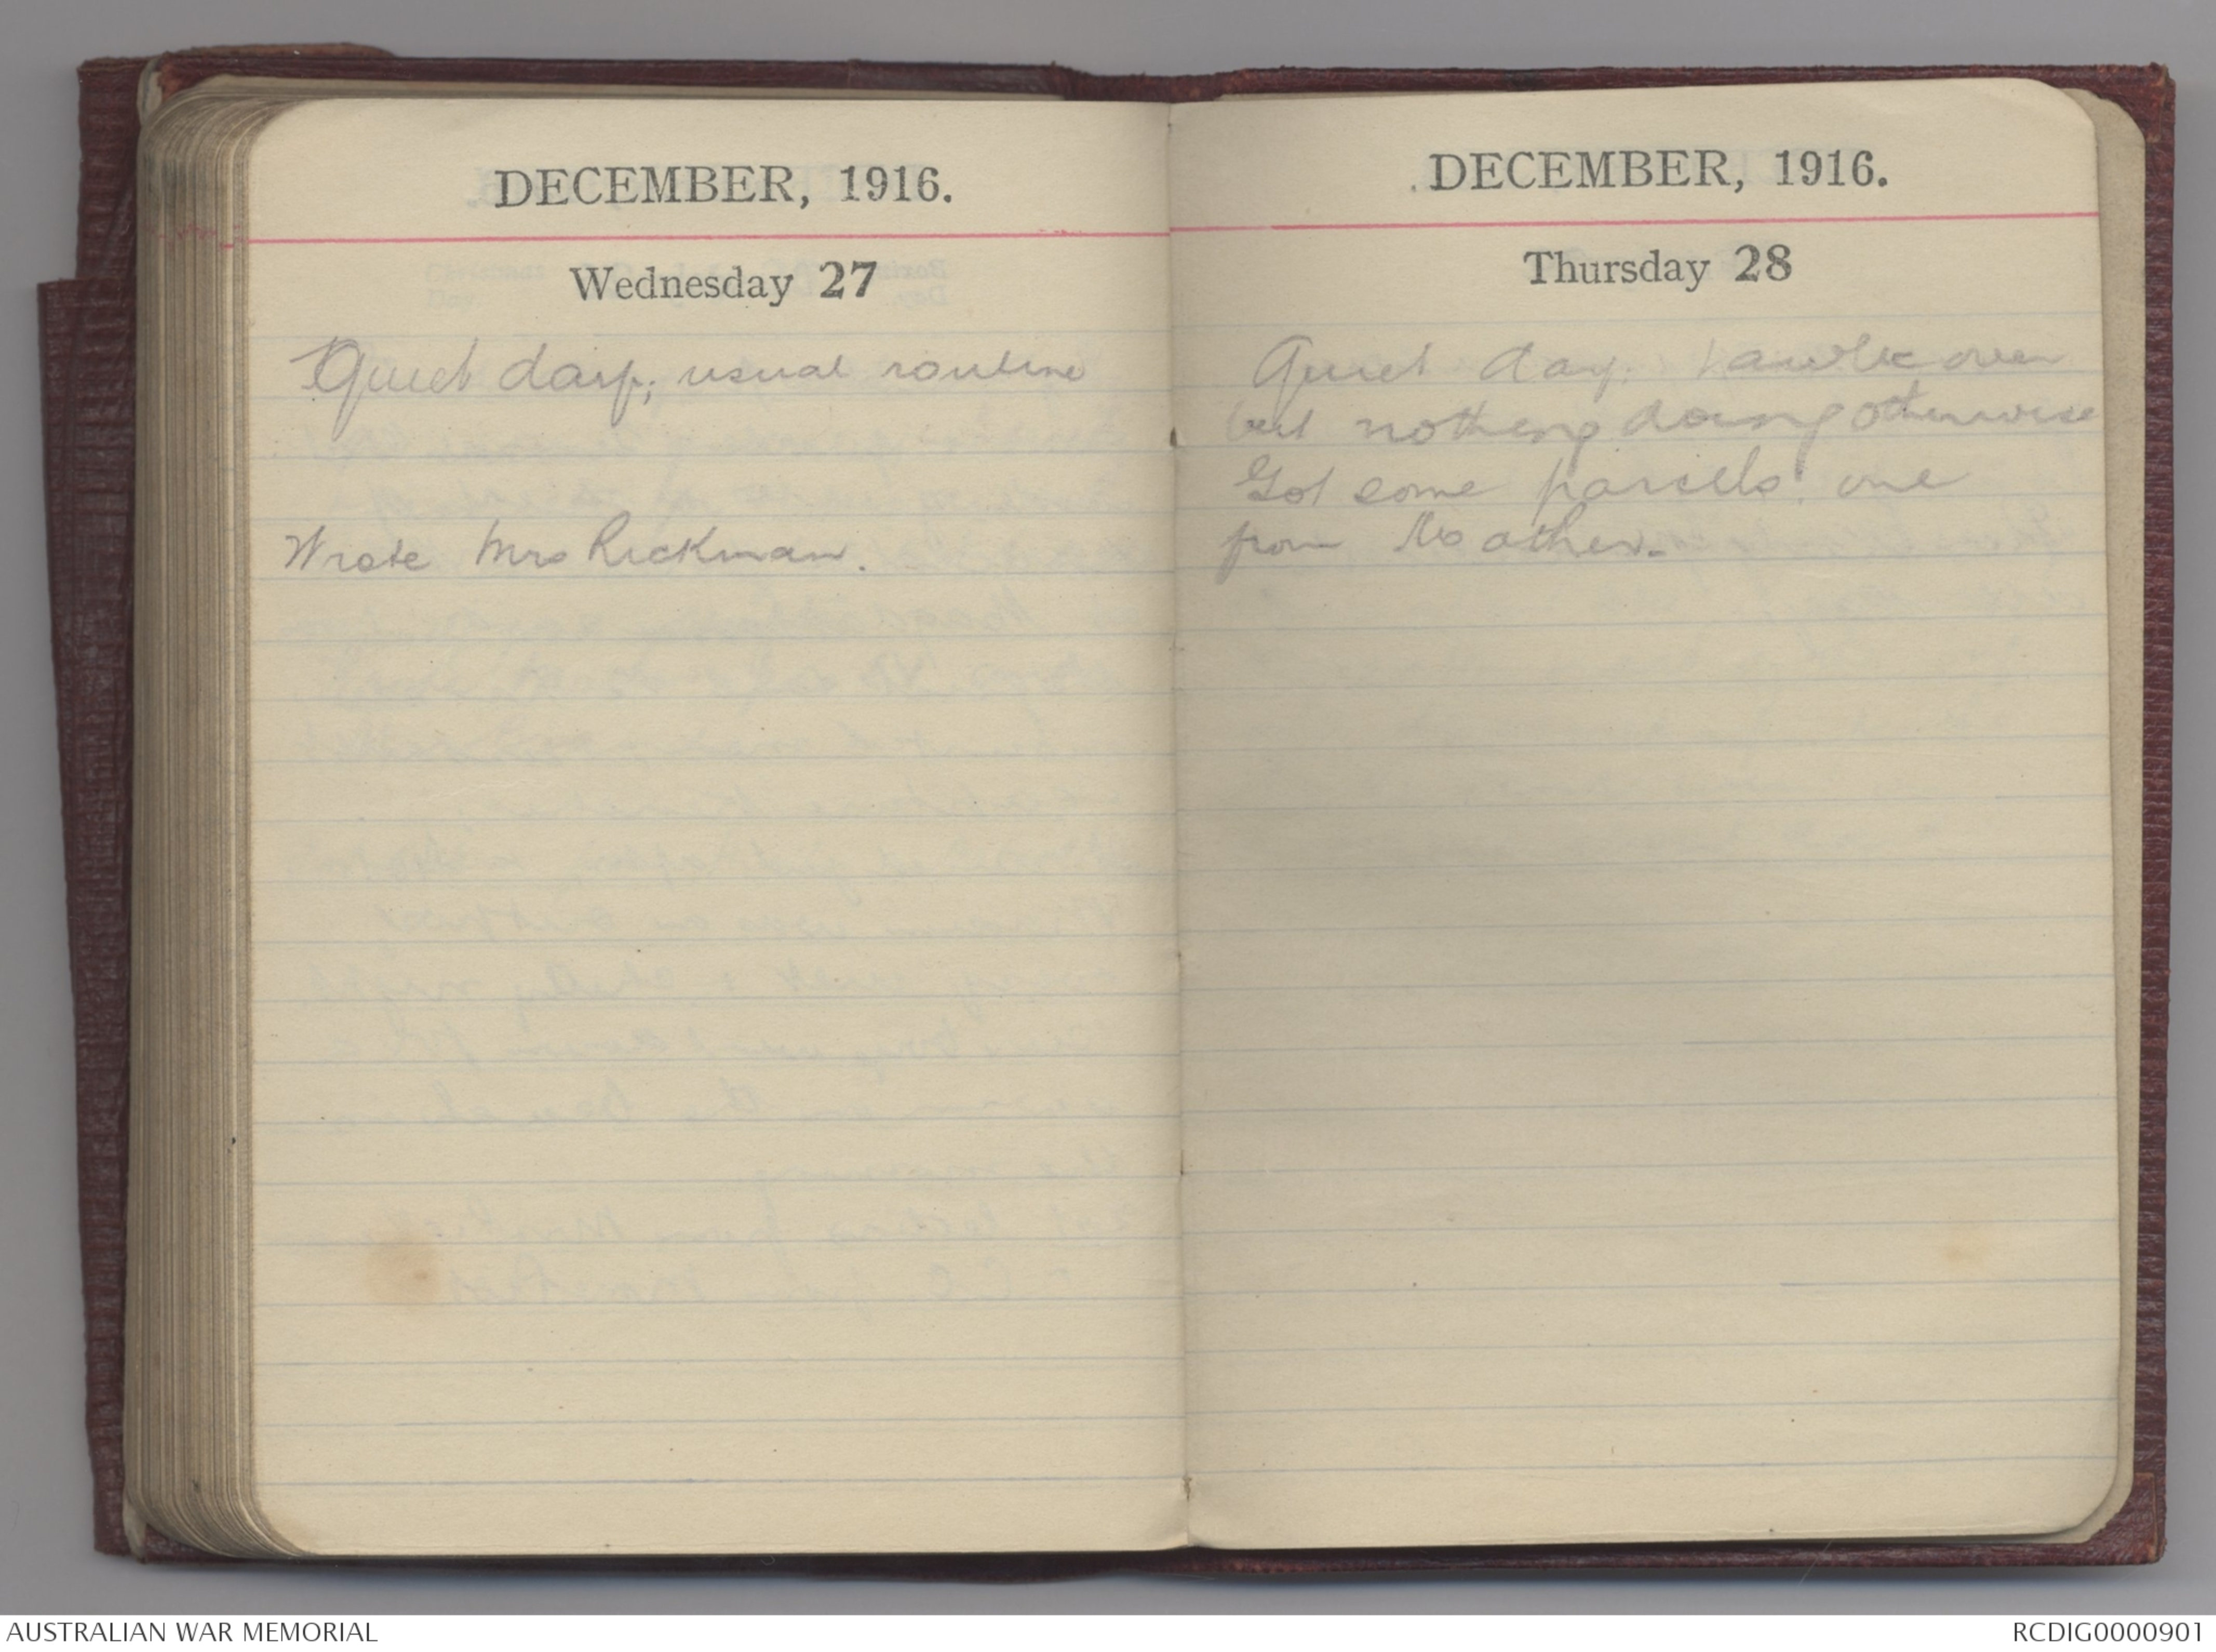 DECEMBER, 1916.
Wednesday 27
Quiet day; usual routine
Wrote Mrs Rickman.
DECEMBER, 1916.
Thursday 28
Quiet day. over
but nothing doing otherwise
Got some parsels: one
from Mother.
AUSTRALIAN WAR MEMORIAL
RCDIG0000901